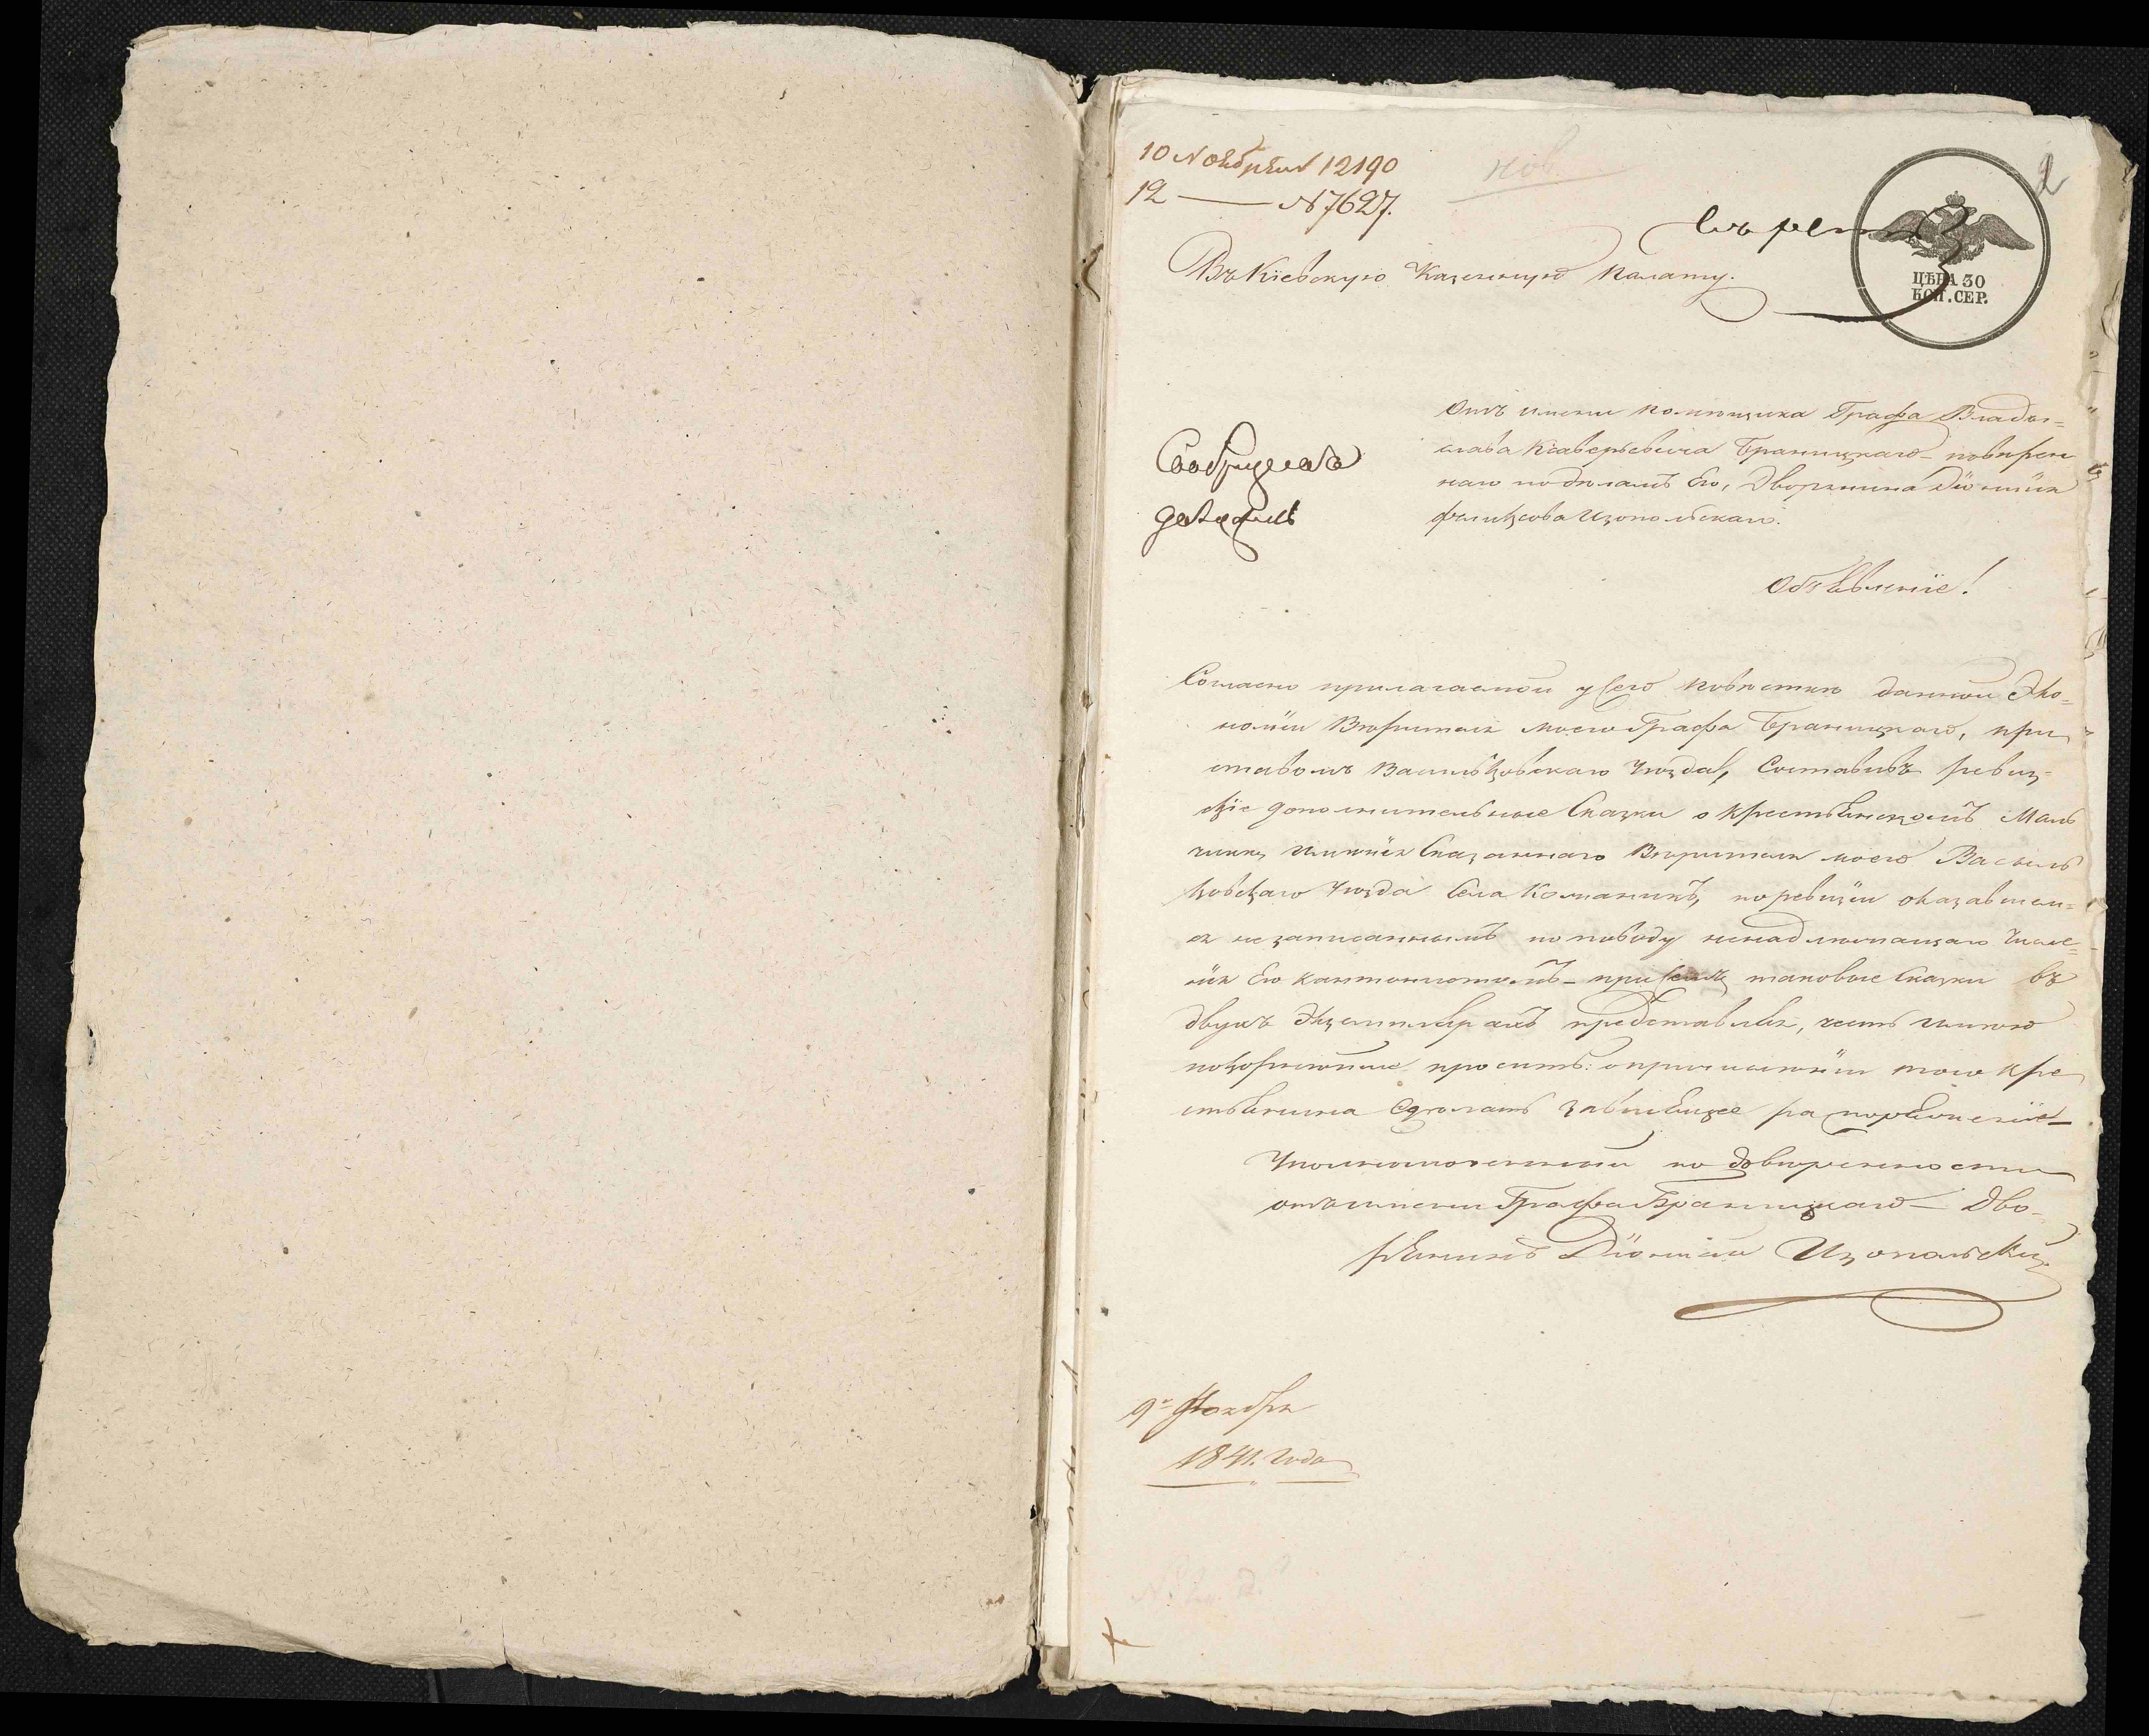 10 Ноября 12190
12 — № 7627.
нов.
2
ЦѢНА 30
КОП. СЕР.
Въ Кіевскую Казенную Палату.
Отъ имени помѣщика Графа Влади=
слава Ксаверьевича Браницкаго — повѣрен
наго по дѣламъ Его, Дворянина Діонизія
Феликсова Изопольскаго.
Объявленіе!
Согласно прилагаемой у сего повѣсткѣ данной Эко=
номіи Вѣрителя моего Графа Браницкаго, при
ставомъ Васильковскаго Уѣзда, составивъ ревиз=
скіе дополнительные Сказки о крестьянскомъ Маль
чикѣ имѣнія Сказаннаго Вѣрителя моего Василь
ковскаго Уѣзда Села по ревизіи оказавшем=
ся незаписаннымъ по поводу ненадлежащаго Числе=
нія Его кантонистомъ — при семъ таковые Сказки въ
двухъ Экземплярахъ представляя, честь имѣю
покорнѣйше просить: о причисленіи того кре
стьянина Сдѣлать зависящее распоряженіе —
Уполномоченный по довѣренности
отъ имени Графа Браницкаго — Дво-
рянинъ Діонизій Изопольскій
9го Ноября
1841. Года